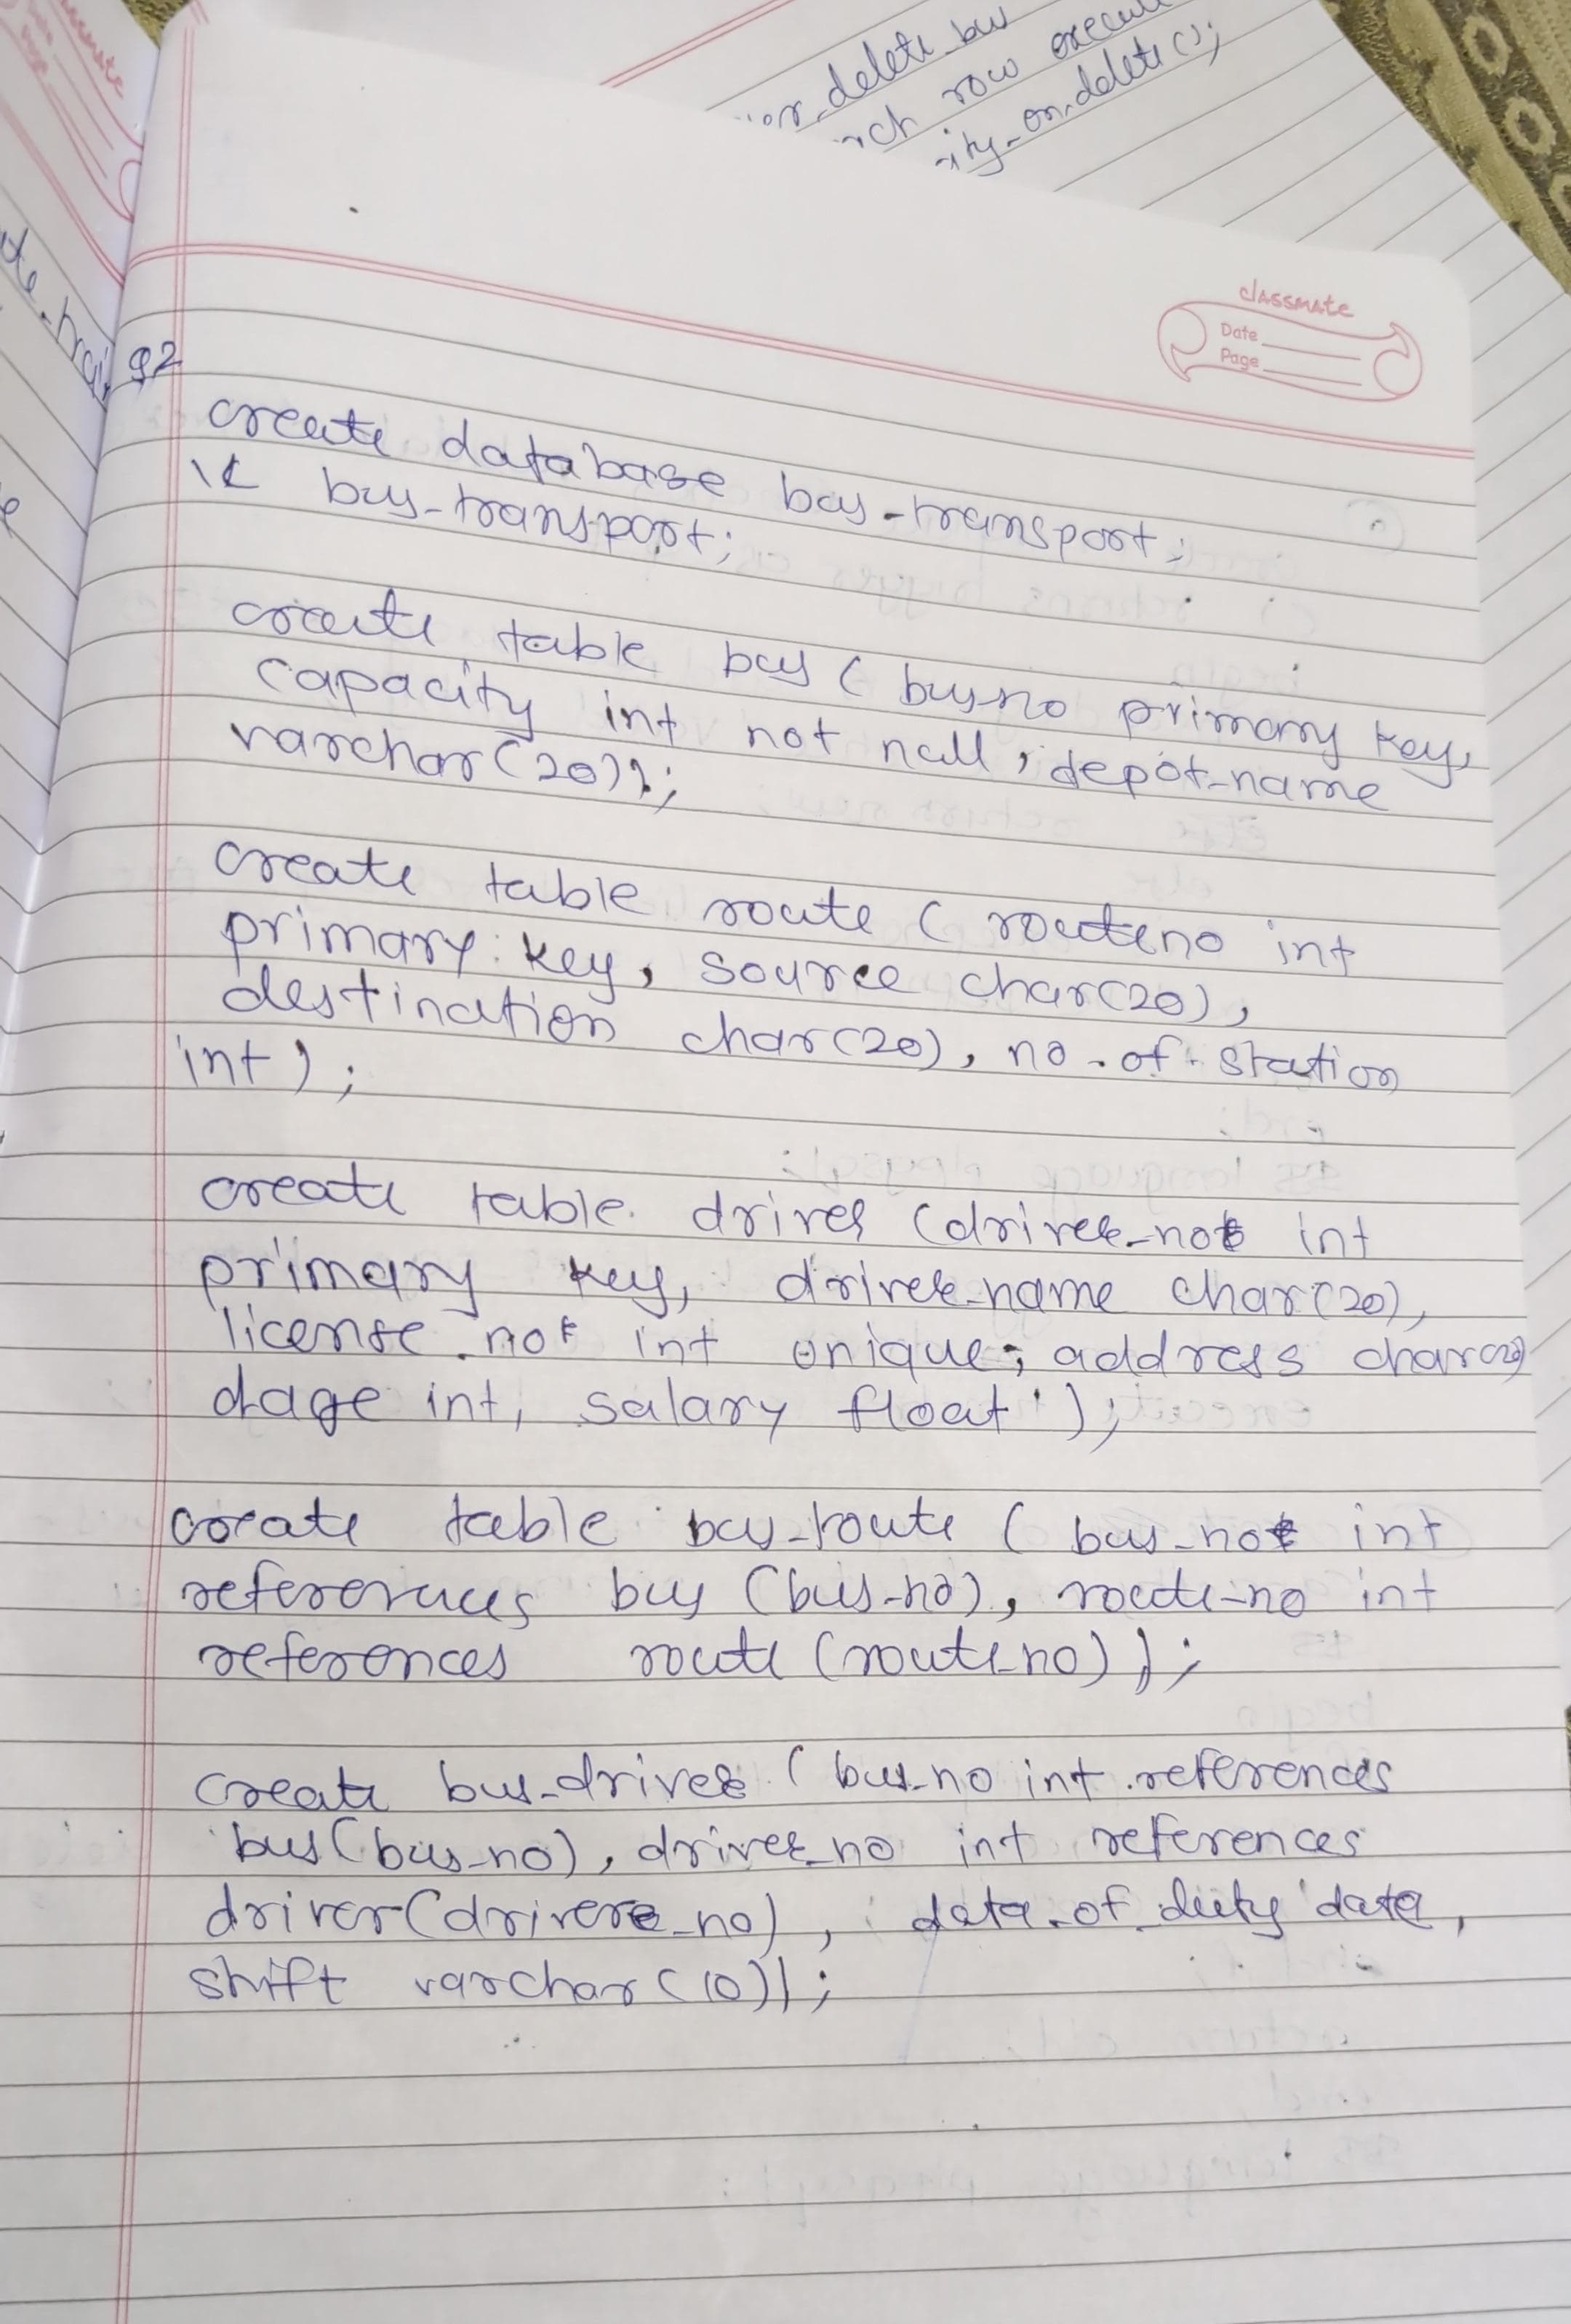 or_delete_bus
row execute
ity_on_delete();
classmate
Date
Page
92
create database bus-transport;
\c bus-transport;
create table bus ( bus-no primary key,
capacity int not null, depot-name
varchar(20));
create table route ( routeno int
primary key, source char(20),
destination char(20), no-of-station
int);
create table driver (driver-no int
primary key, driver-name char(20),
license_no int unique, address char(20)
dage int, salary float );
create table bus-route ( bus-no int
references bus (bus-no), route-no int
references route (route-no));
create bus-driver ( bus-no int references
bus(bus-no), driver_no int references
driver(driver_no), date_of_duty date,
shift varchar(10));